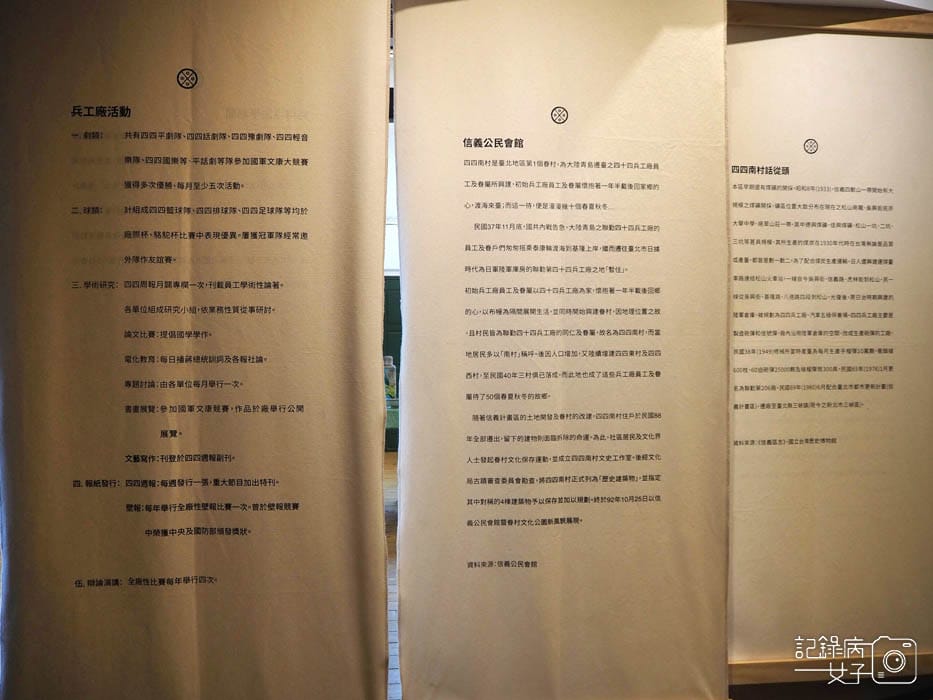 兵工廠活動
一. 劇類： 共有四四平劇隊、四四話劇隊、四四豫劇隊、四四輕音
樂隊、四四國樂等、平話劇等隊參加國軍文康大競賽
獲得多次優勝，每月至少五次活動。
二. 球類： 計組成四四籃球隊、四四排球隊、四四足球隊等均於
廠際杯、駱駝杯比賽中表現優異。屢獲冠軍隊經常邀
外隊作友誼賽。
三. 學術研究： 四四周報月闢專欄一次，刊載員工學術性論著。
各單位組成研究小組，依業務性質從事研討。
論文比賽：提倡國學學作。
電化教育：每日播蔣總統訓詞及各報社論。
專題討論：由各單位每月舉行一次。
書畫展覽：參加國軍文康競賽，作品於廠舉行公開
展覽。
文藝寫作：刊登於四四週報副刊。
四. 報紙發行： 四四週報：每週發行一張，重大節目加出特刊。
壁報：每年舉行全廠性壁報比賽一次。曾於壁報競賽
中榮獲中央及國防部頒發獎狀。
伍. 辯論演講： 全廠性比賽每年舉行四次。
信義公民會館
四四南村是臺北地區第1個眷村，為大陸青島遷臺之四十四兵工廠員
工及眷屬所興建，初始兵工廠員工及眷屬懷抱著一年半載後回家鄉的
心，渡海來臺；而這一待，便是漫漫幾十個春夏秋冬…
民國37年11月底，國共內戰告急，大陸青島之聯勤四十四兵工廠的
員工及眷戶們匆匆搭乘泰康輪渡海到基隆上岸，繼而遷往臺北市日據
時代為日軍陸軍庫房的聯勤第四十四兵工廠之地「暫住」。
初始兵工廠員工及眷屬以四十四兵工廠為家，懷抱著一年半載後回鄉
的心，以布幔為隔間展開生活，並同時開始興建眷村，因地理位置之故
，且村民皆為聯勤四十四兵工廠的同仁及眷屬，故名為四四南村，而當
地居民多以「南村」稱呼。後因人口增加，又陸續增建四四東村及四四
西村，至民國40年三村俱已落成。而此地也成了這些兵工廠員工及眷
屬待了50個春夏秋冬的故鄉。
隨著信義計畫區的土地開發及眷村的改建，四四南村住戶於民國88
年全部遷出，留下的建物則面臨拆除的命運。為此，社區居民及文化界
人士發起眷村文化保存運動，並成立四四南村文史工作室。後經文化
局古蹟審查委員會勘查，將四四南村正式列為「歷史建築物」，並指定
其中對稱的4棟建築物予以保存並加以規劃。終於92年10月25日以信
義公民會館暨眷村文化公園新風貌展現。
資料來源：信義公民會館
四四南村話從頭
本區早期還有煤礦的開採。昭和8年(1933)，信義四獸山一帶開始有大
規模之煤礦開採，礦區位置大致分布在現在之松山商職、吳興街底原
三坑等甚具規模，其所生產的煤炭在1930年代時在台灣無論是品質
或產量，都曾是數一數二。為了配合煤炭生產運輸，日人還興建運煤臺
製造砲彈和信號彈，廠內沿用陸軍倉庫的空間，改成生產砲彈的工廠。
600枚，60迫砲彈25000顆及槍榴彈架300具。民國65年(1976)1月更
名為聯勤第206廠。民國69年(1980)6月配合臺北市都市更新計畫(信
義計畫區)，遷廠至臺北縣三峽鎮(現今之新北市三峽區)。
資料來源：《信義區志》、國立台灣歷史博物館
記錄病
一女子